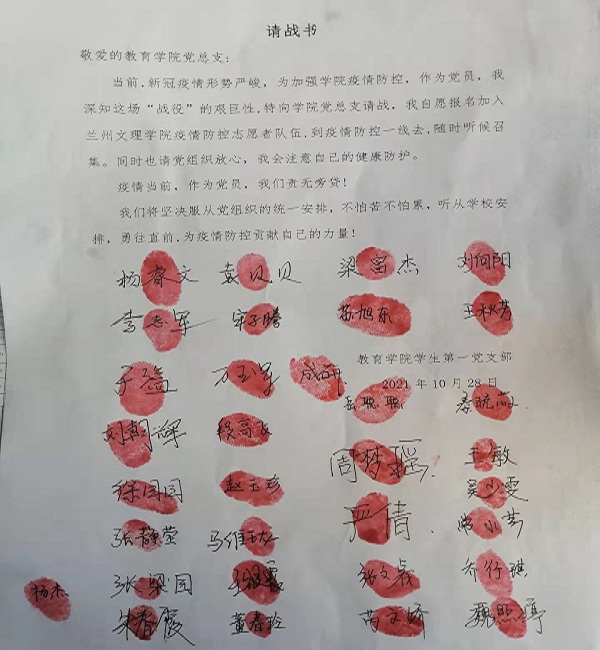 请战书
敬爱的教育学院党总支：
当前，新冠疫情形势严峻，为加强学院疫情防控，作为党员，我
深知这场“战役”的艰巨性，特向学院党总支请战，我自愿报名加入
兰州文理学院疫情防控志愿者队伍，到疫情防控一线去，随时听候召
集。同时也请党组织放心，我会注意自己的健康防护。
疫情当前，作为党员，我们责无旁贷！
我们将坚决服从党组织的统一安排，不怕苦不怕累，听从学校安
排，勇往直前，为疫情防控贡献自己的力量！
杨睿文 袁贝贝 梁富杰 刘向阳
李志军 宋子腾 苗旭东 王秋芳
教育学院学生第一党支部
于璐 万玉军 2021年10月28日
岳聪聪 秦晓
刘朝辉
周梦瑶 王敏
徐园园 赵玉珍 吴少雯
张静萱 马维 严倩 常小芳
张梁园 张文 乔衍琪
杨杰
朱春霞 董春玲 苟文娇 魏照